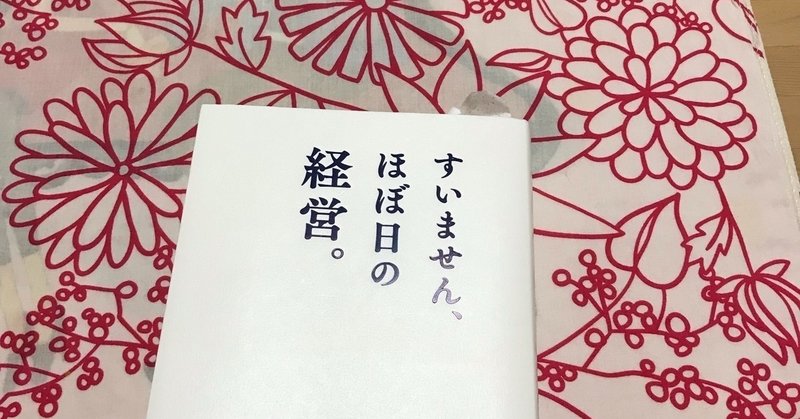 すいません、
ほぼ日の
経営。